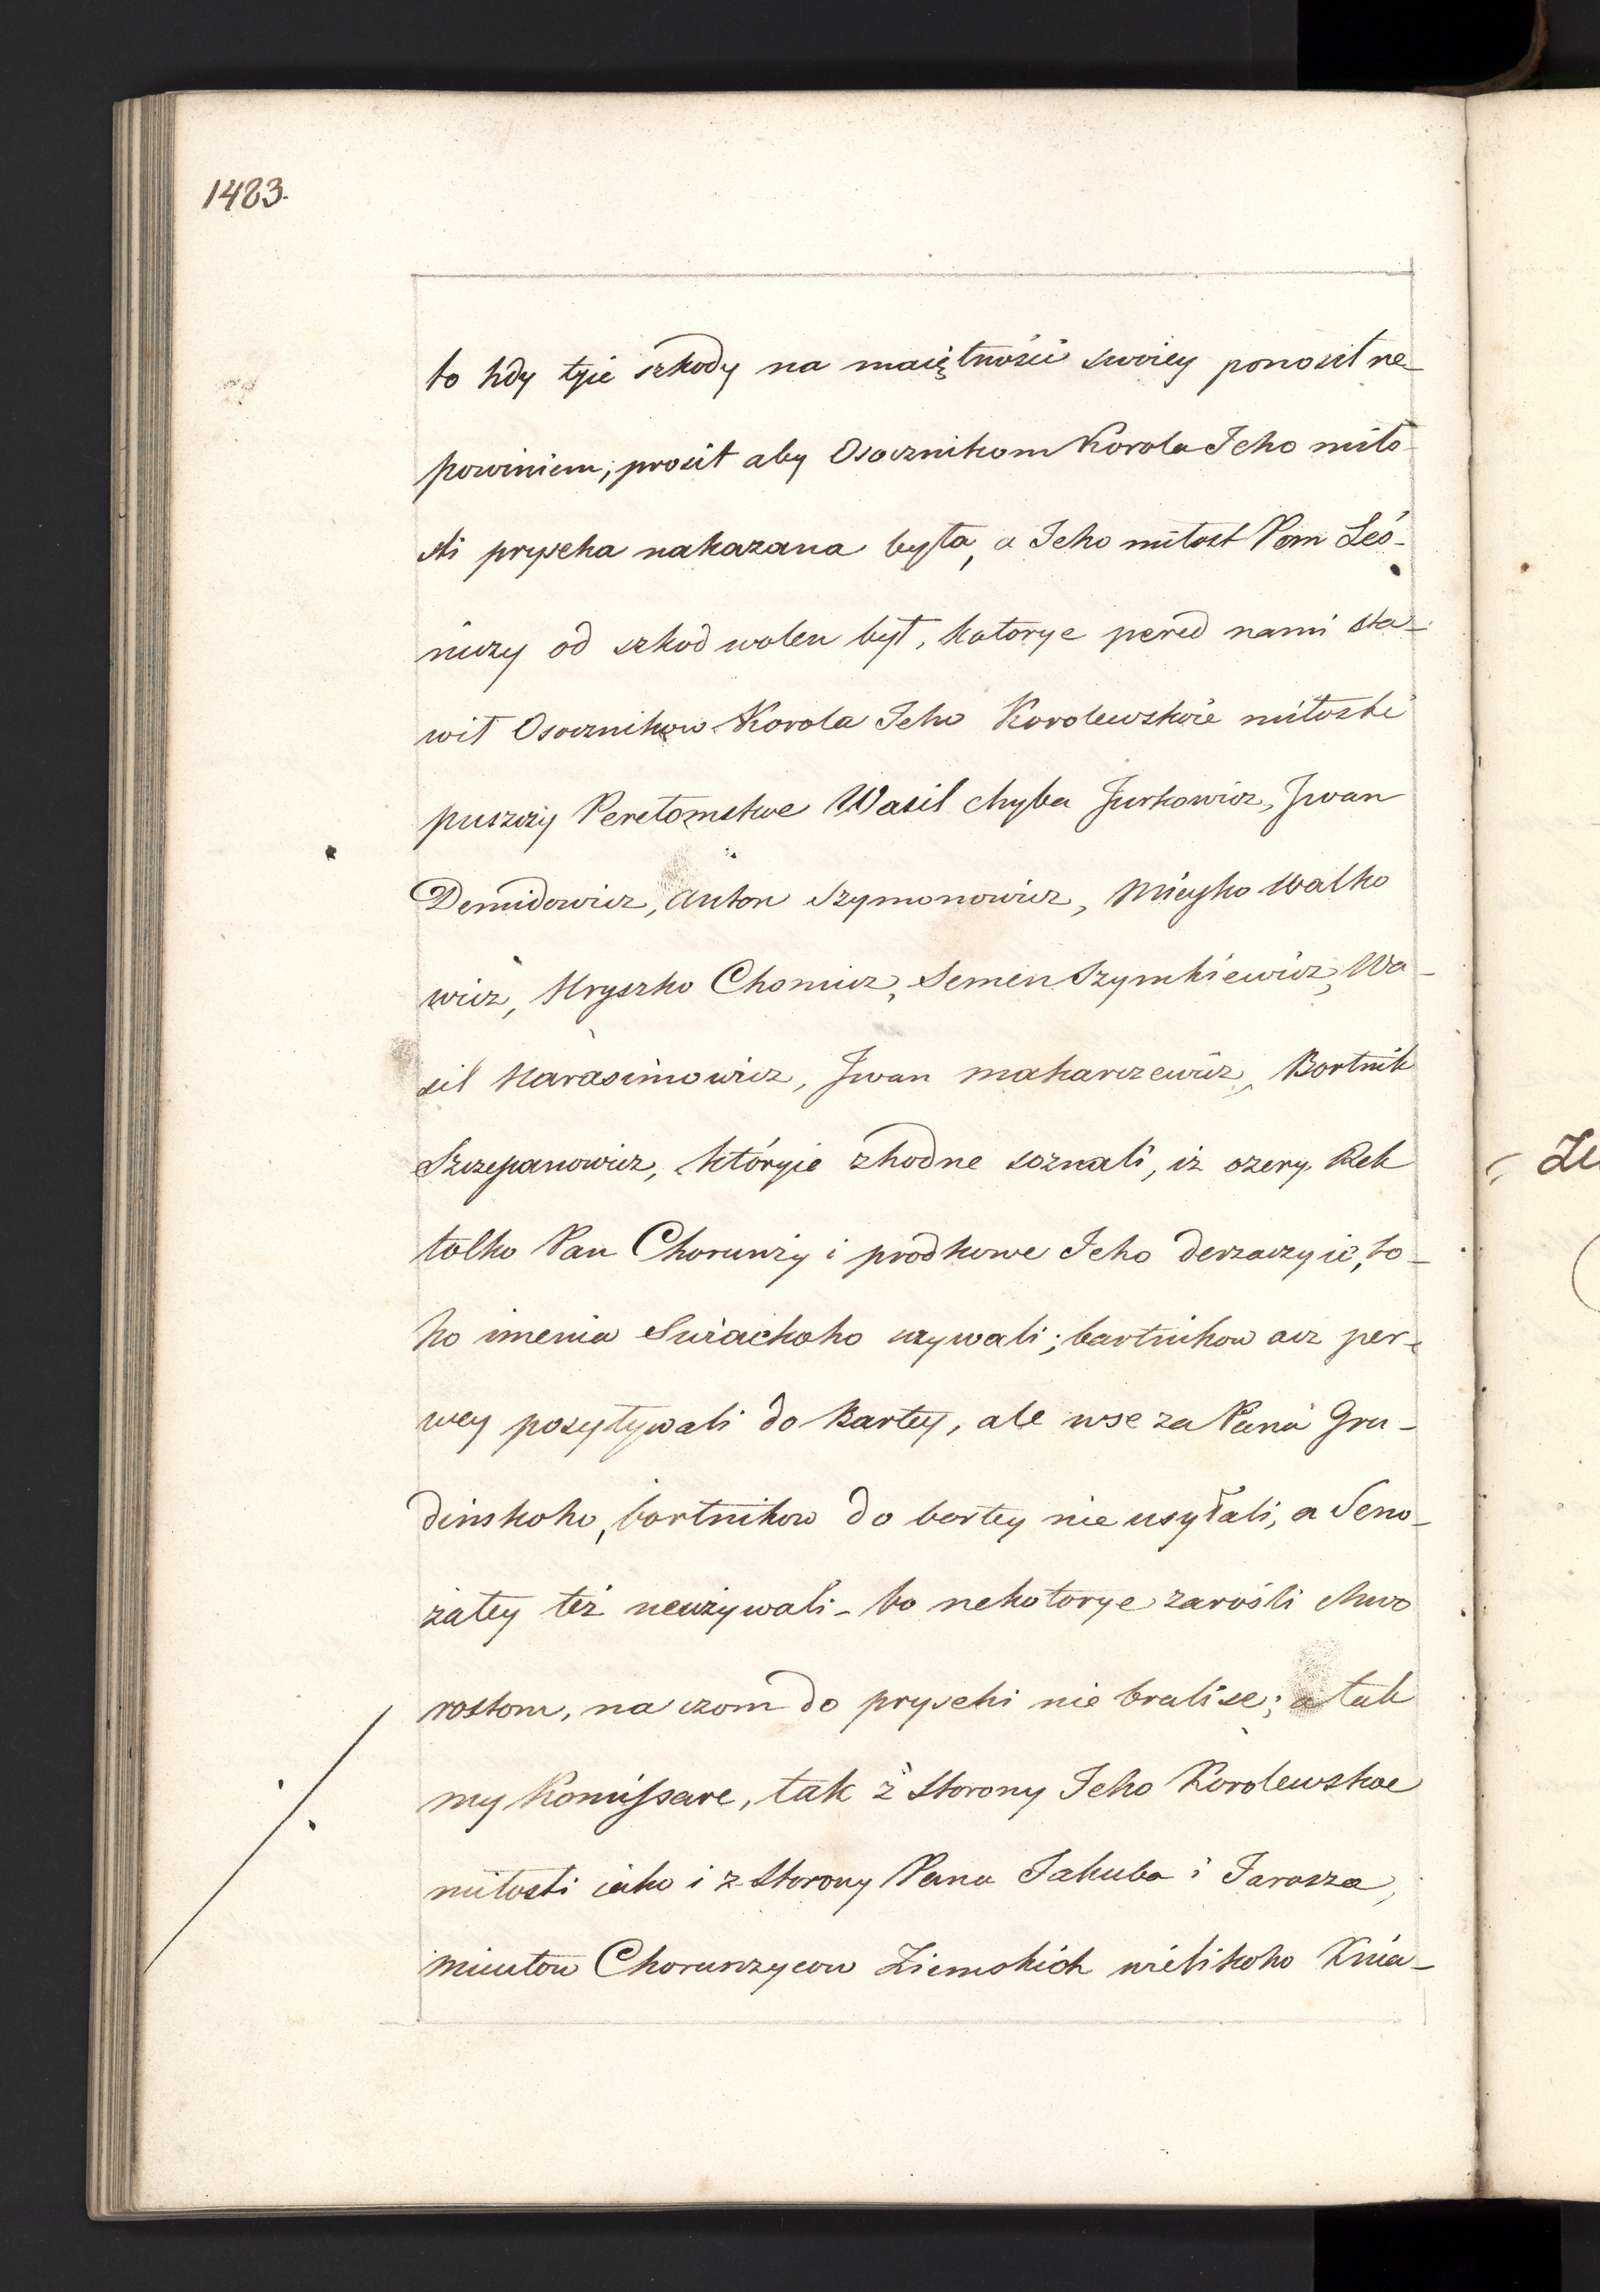 1483.
to hdy tyie szkody na maiętnosci swoiey ponosił ne-
powiniem, prosił aby Osocznikom Korola Jeho miło-
sti pryseha nakazana była, a Jeho miłost Pan Leś-
niczy od szkod wolen był, katorye pered nami sta-
wił Osocznikow Korola Jeho Korolewskie miłosti
puszczy Perełomskoe Wasil chyba Jurkowicz, Jwan
Demidowicz, Anton Szymonowicz, Misyko Walko
wicz, Hryszko Chomicz, Semen Szymkiewicz, Wa-
sil Harasimowicz, Jwan makarczewicz, Bortnik
Szczepanowicz, którgie zhodne soznali, iz ozery, Rek
tolko Pan Chorunży i prodkowe Jeho derzaczyie, to-
ho imenia Swiackoho uzywali; bartnikow acz per-
wey posyływali do Bartey, ale wse za Pana Gru-
dinskoho, bortnikow do bortey nie usyłali, a Seno-
żatey też neużywali - bo nekotorye zarośli chwo
rostom, na czom do prysehi nie bralise; a tak
my Komissare, tak z storony Jeho Korolewskoe
miłosti iako i z storony Pana Jakuba i Jarosza,
Chorunzycow Ziemskich wielikoho Knia-